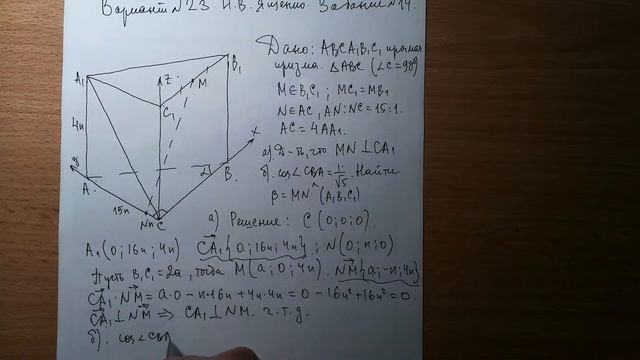 Вариант №23 И.В. Ященко. Задание №14.
Дано: ABCA₁B₁C₁ прямая
призма. △ABC (∠C=90°)
M∈B₁C₁; MC₁=MB₁
N∈AC, AN:NC=15:1.
AC=4AA₁.
а). Д-ть, что MN⊥CA₁
б). cos∠CBA=1/√5. Найти
β=MN^(A₁B₁C₁)
A₁
B₁
z
M
C₁
4n
x
y
A
2a
B
15n
N n C
а) Решение: C(0;0;0).
A₁(0;16n;4n) CA₁{0;16n;4n}; N(0;n;0)
Пусть B₁C₁=2a, тогда M(a;0;4n). NM{a;-n;4n}
CA₁·NM=a·0-n·16n+4n·4n=0-16n²+16n²=0.
CA₁⊥NM ⇒ CA₁⊥NM. ч.т.д.
б). cos∠CBA